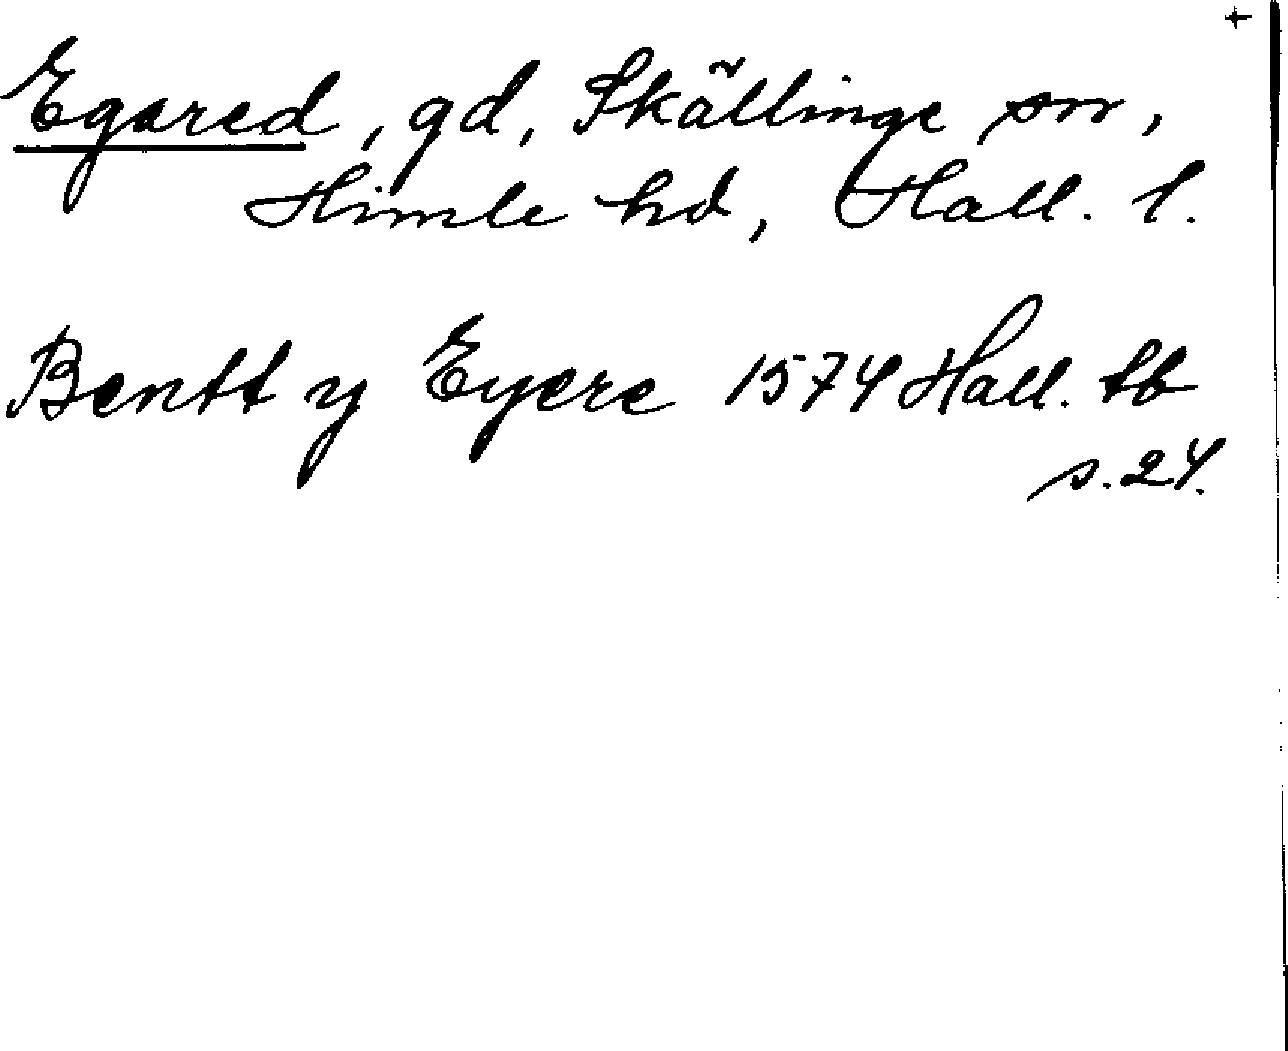 +
Egared, gd, Skällinge sn,
Himle hd, Hall. l.
Bentt y Eyere 1574 Hall. tb
s. 24.